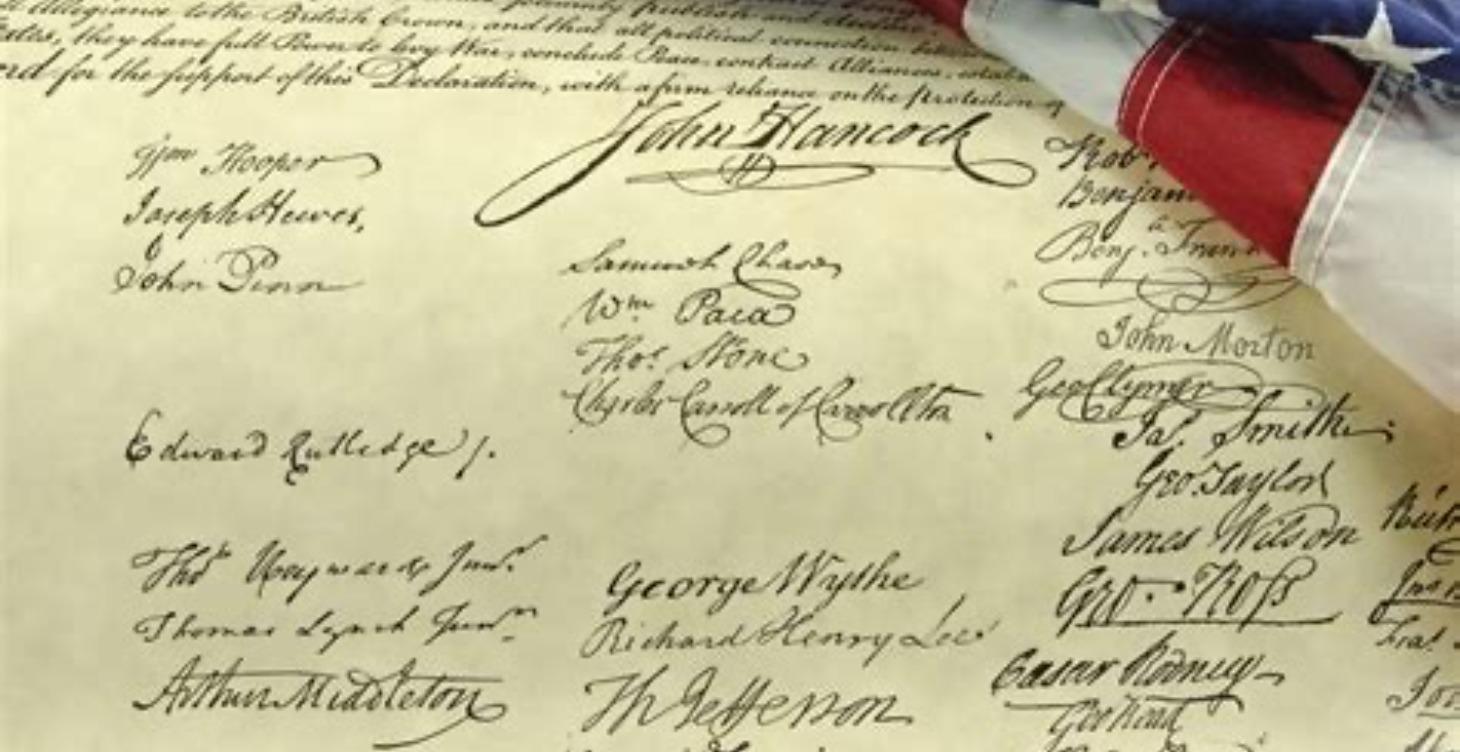 Allegiance to the British Crown, and that all political connection
they have full Power to levy War, conclude Peace, contract Alliances,
for the support of this Declaration, with a firm reliance on the protection of
John Hancock
Wm Hooper
Joseph Hewes,
John Penn
Edward Rutledge /.
Thos Heyward Junr.
Thomas Lynch Junr.
Arthur Middleton
Samuel Chase
Wm. Paca
Thos. Stone
Charles Carroll of Carrollton
George Wythe
Richard Henry Lee
Th Jefferson
Rob
Benjam
Benj. Frank
John Morton
Geo Clymer
Jas. Smith
Geo. Taylor
James Wilson
Geo. Ross
Caesar Rodney
Geo Read